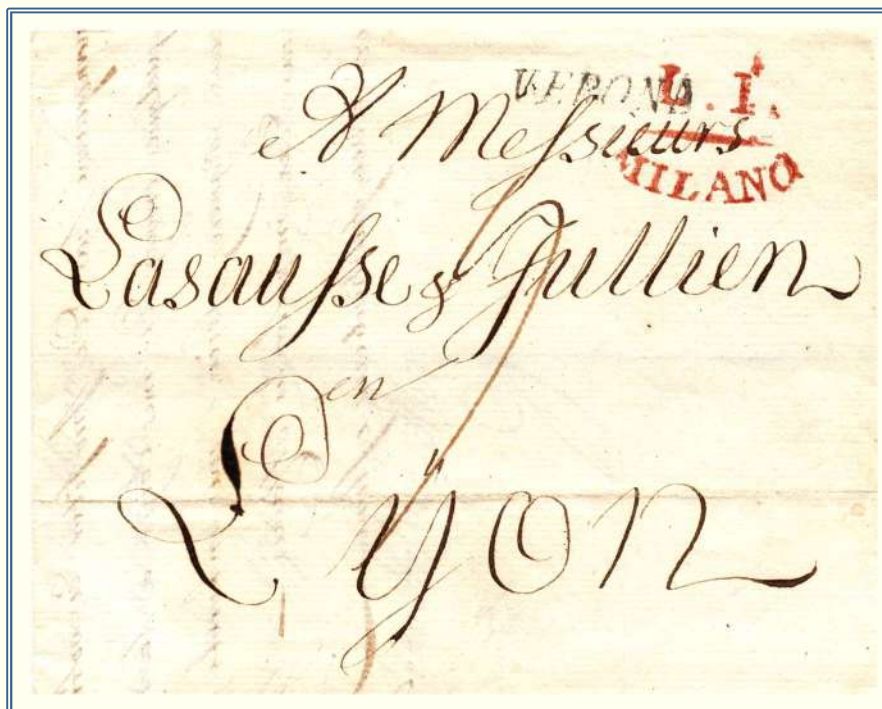 VERONA
L. I.
MILANO
A Messieurs
Lasausse & Jullien
en
Lÿon